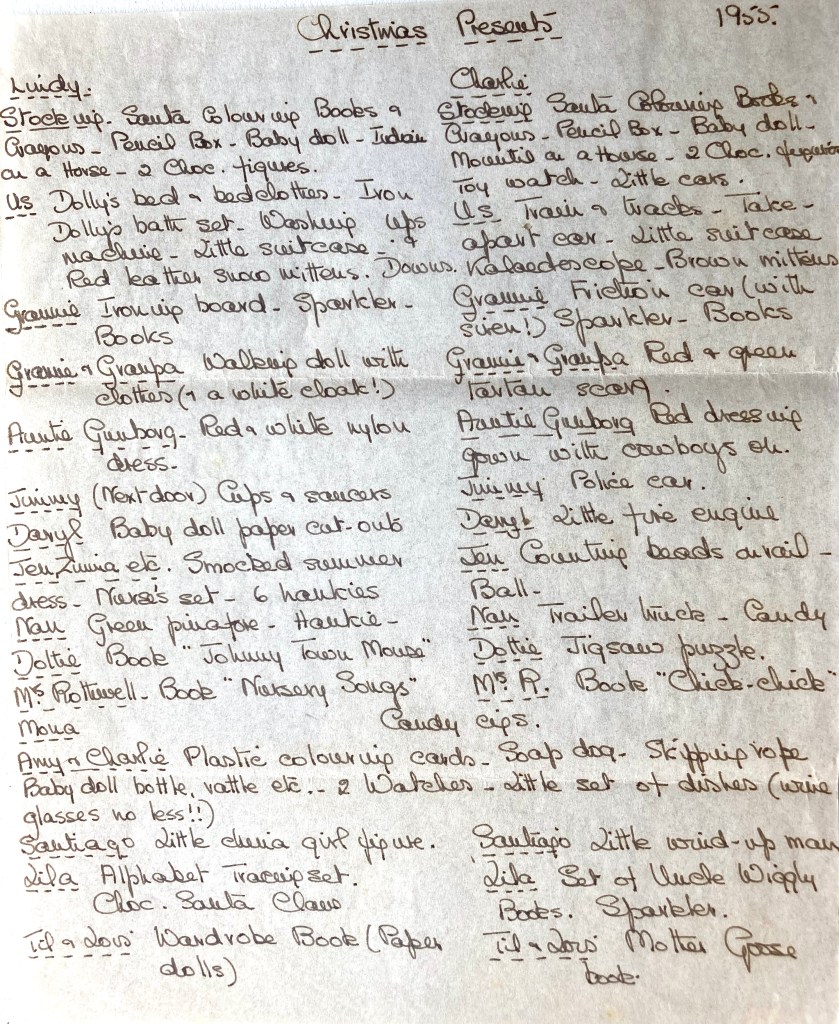 Christmas Presents 1955.
Lindy.
Stocking - Santa Colouring Books &
Crayons - Pencil Box - Baby doll - Indian
on a Horse - 2 Choc. figures.
Us Dolly's bed & bedclothes - Iron
Dolly's bath set - Washing ups
machine - Little suitcase - &
Red leather snow mittens. Downs.
Grannie Ironing board - Sparkler -
Books
Grannie & Grandpa Walking doll with
clothes (& a white cloak!)
Auntie Gunborg - Red & white nylon
dress -
Jimmy (Next door) Cups & saucers
Daryl Baby doll paper cut-outs
Jen, etc. Smocked summer
dress - Nurse's set - 6 hankies
Nan Green pinafore - Hankie -
Dottie Book "Johnny Town Mouse"
Mrs Rothwell - Book "Nursery Songs"
Charlie
Stocking Santa Colouring Books &
Crayons - Pencil Box - Baby doll -
Mountie on a House - 2 Choc.
Toy watch - Little cars.
Us Train & tracks - Take -
apart car - Little suitcase
Kalaedescope - Brown mittens
Grannie Friction car (with
siren!) Sparkler - Books
Grannie & Granpa Red & green
tartan scarf.
Auntie Gunborg Red dressing
gown with cowboys on.
Jimmy Police car.
Daryl Little fire engine
Jen Counting beads on rail -
Ball -
Nan Trailer truck - Candy
Dottie Jigsaw puzzle.
Mrs R. Book "Chick-chick"
Mona Candy cigs.
Amy & Charlie Plastic colouring cards - Soap dog - Skipping rope
Baby doll bottle, rattle etc. - 2 Watches - Little set of dishes (wine
glasses no less!!)
Santiago Little china girl figure.
Lila Alphabet Tracing set.
Choc. Santa Claus
Til & Lois Wardrobe Book (Paper
dolls)
Santiago Little wind-up man
Lila Set of Uncle Wiggly
Books. Sparkler.
Til & Lois Mother Goose
book.